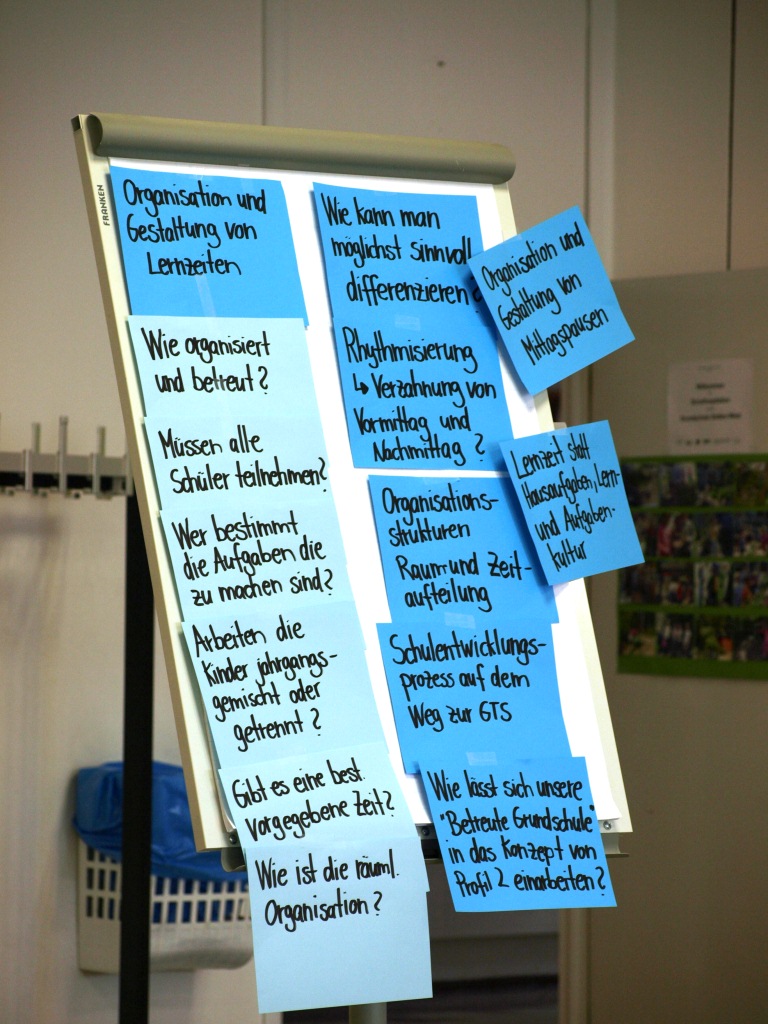 FRANKEN
Organisation und
Gestaltung von
Lernzeiten
Wie organisiert
und betreut?
Müssen alle
Schüler teilnehmen?
Wer bestimmt
die Aufgaben die
zu machen sind?
Arbeiten die
Kinder jahrgangs-
gemischt oder
getrennt?
Gibt es eine best.
vorgegebene Zeit?
Wie ist die räuml.
Organisation?
Wie kann man
möglichst sinnvoll
differenzieren
Rhythmisierung
↳ Verzahnung von
Vormittag und
Nachmittag?
Organisations-
strukturen
Raum und Zeit-
aufteilung
Schulentwicklungs-
prozess auf dem
Weg zur GTS
Wie lässt sich unsere
"Betreute Grundschule"
in das Konzept von
Profil 2 einarbeiten?
Organisation und
Gestaltung von
Mittagspausen
Lernzeit statt
Hausaufgaben, Lern-
und Aufgaben-
kultur